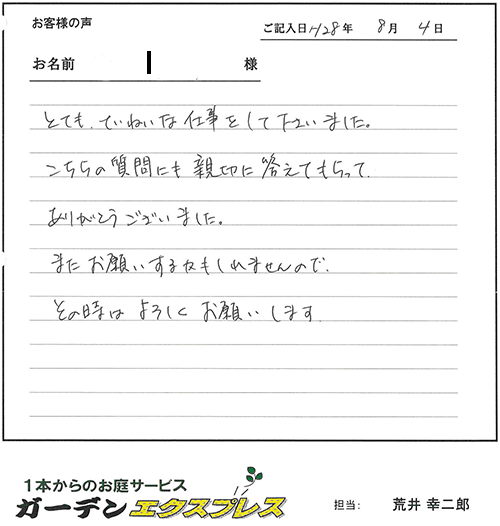 お客様の声
ご記入日 H28年 8月 4日
お名前 I 様
とても、ていねいな仕事をして下さいました。
こちらの質問にも親切に答えてもらって、
ありがとうございました。
またお願いするかもしれませんので、
その時はよろしくお願いします
1本からのお庭サービス
ガーデンエクスプレス
担当: 荒井 幸二郎